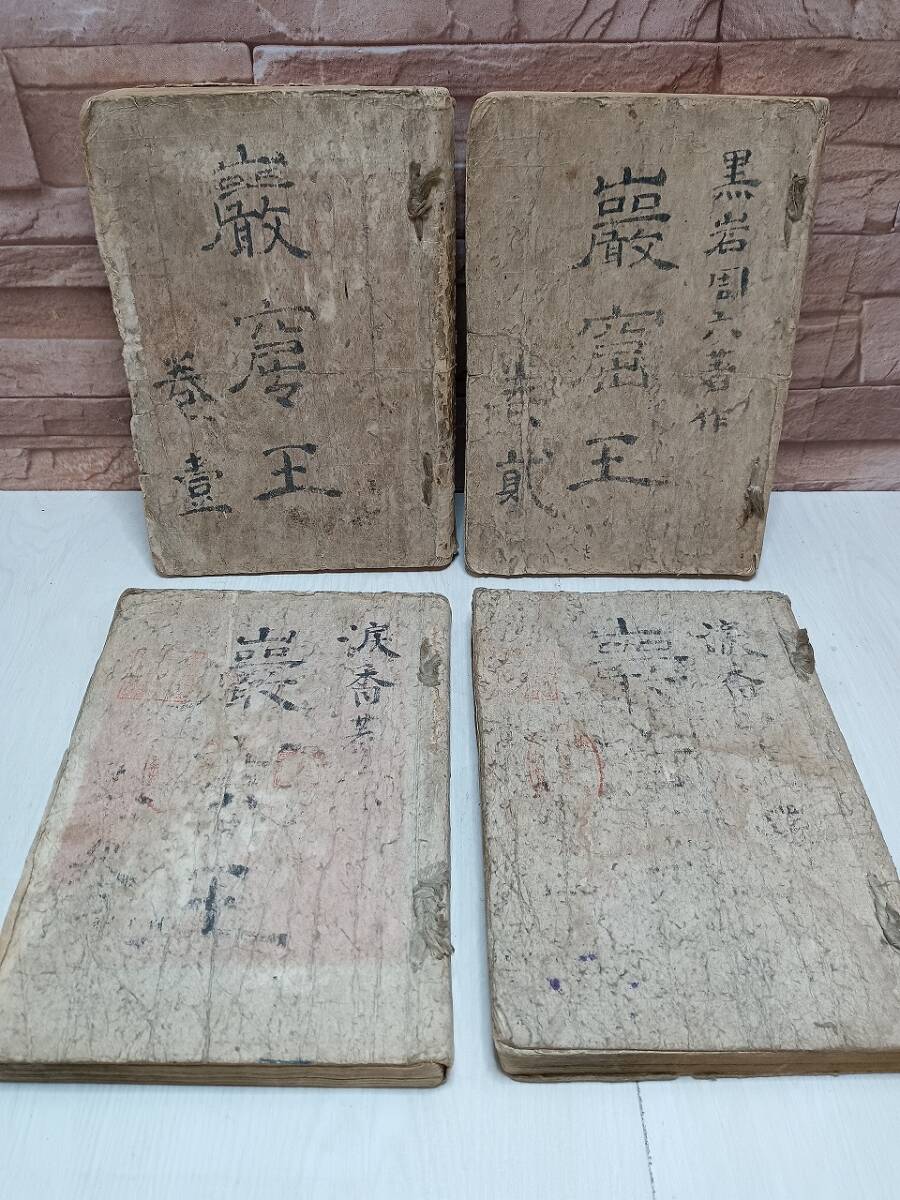 巖窟王
卷壹
黒岩周六著作
巖窟王
卷貳
涙香著
巖 王
涙香
巖